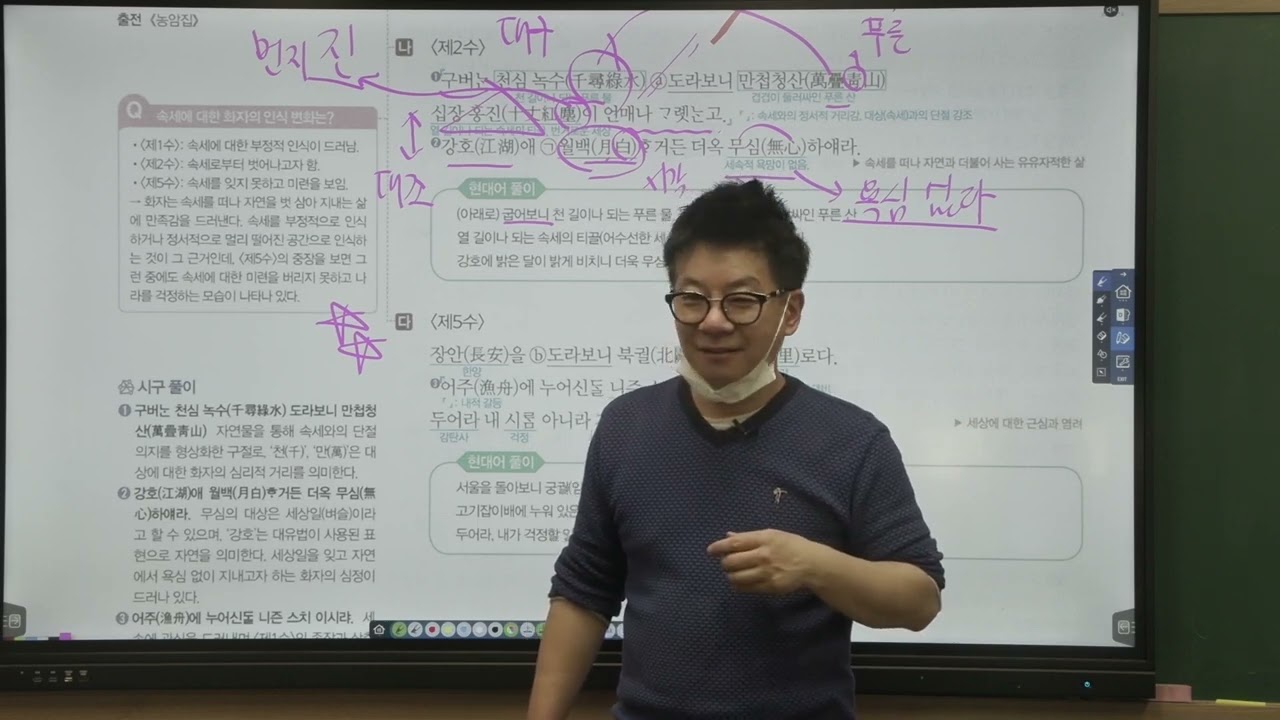 출전 《농암집》
먼지 진
대구
푸른
나 〈제2수〉
❶구버는 천심 녹수(千尋綠水) ⓐ도라보니 만첩청산(萬疊靑山)
겹겹이 둘러싸인 푸른 산
십장 홍진(十丈紅塵)이 언매나 ᄀ렷는고.
『 』: 속세와의 정서적 거리감, 대상(속세)과의 단절 강조
❷강호(江湖)애 ㉠월백(月白)ᄒ거든 더옥 무심(無心)하얘라.
세속적 욕망이 없음.
▶ 속세를 떠나 자연과 더불어 사는 유유자적한 삶
대조
시각
욕심 없다
현대어 풀이
(아래로) 굽어보니 천 길이나 되는 푸른 물
싸인 푸른 산
열 길이나 되는 속세의 티끌(어수선한 세
강호에 밝은 달이 밝게 비치니 더욱 무심
Q 속세에 대한 화자의 인식 변화는?
• 〈제1수〉: 속세에 대한 부정적 인식이 드러남.
• 〈제2수〉: 속세로부터 벗어나고자 함.
• 〈제5수〉: 속세를 잊지 못하고 미련을 보임.
→ 화자는 속세를 떠나 자연을 벗 삼아 지내는 삶
에 만족감을 드러낸다. 속세를 부정적으로 인식
하거나 정서적으로 멀리 떨어진 공간으로 인식하
는 것이 그 근거인데, 〈제5수〉의 중장을 보면 그
런 중에도 속세에 대한 미련을 버리지 못하고 나
라를 걱정하는 모습이 나타나 있다.
다 〈제5수〉
장안(長安)을 ⓑ도라보니 북궐(北
里)로다.
한양
❸어주(漁舟)에 누어신ᄃᆞᆯ 니즌
『 』: 내적 갈등
두어라 내 시름 아니라
감탄사
걱정
▶ 세상에 대한 근심과 염려
현대어 풀이
서울을 돌아보니 궁궐(임
고기잡이배에 누워 있은
두어라, 내가 걱정할 일
시구 풀이
❶ 구버는 천심 녹수(千尋綠水) 도라보니 만첩청
산(萬疊靑山) 자연물을 통해 속세와의 단절
의지를 형상화한 구절로, '천(千)', '만(萬)'은 대
상에 대한 화자의 심리적 거리를 의미한다.
❷ 강호(江湖)애 월백(月白)ᄒ거든 더옥 무심(無
心)하얘라. 무심의 대상은 세상일(벼슬)이라
고 할 수 있으며, '강호'는 대유법이 사용된 표
현으로 자연을 의미한다. 세상일을 잊고 자연
에서 욕심 없이 지내고자 하는 화자의 심정이
드러나 있다.
❸ 어주(漁舟)에 누어신ᄃᆞᆯ 니즌 스치 이시랴. 세
속에 관심을 드러내며 〈제1수〉의 종장과 상
EXIT